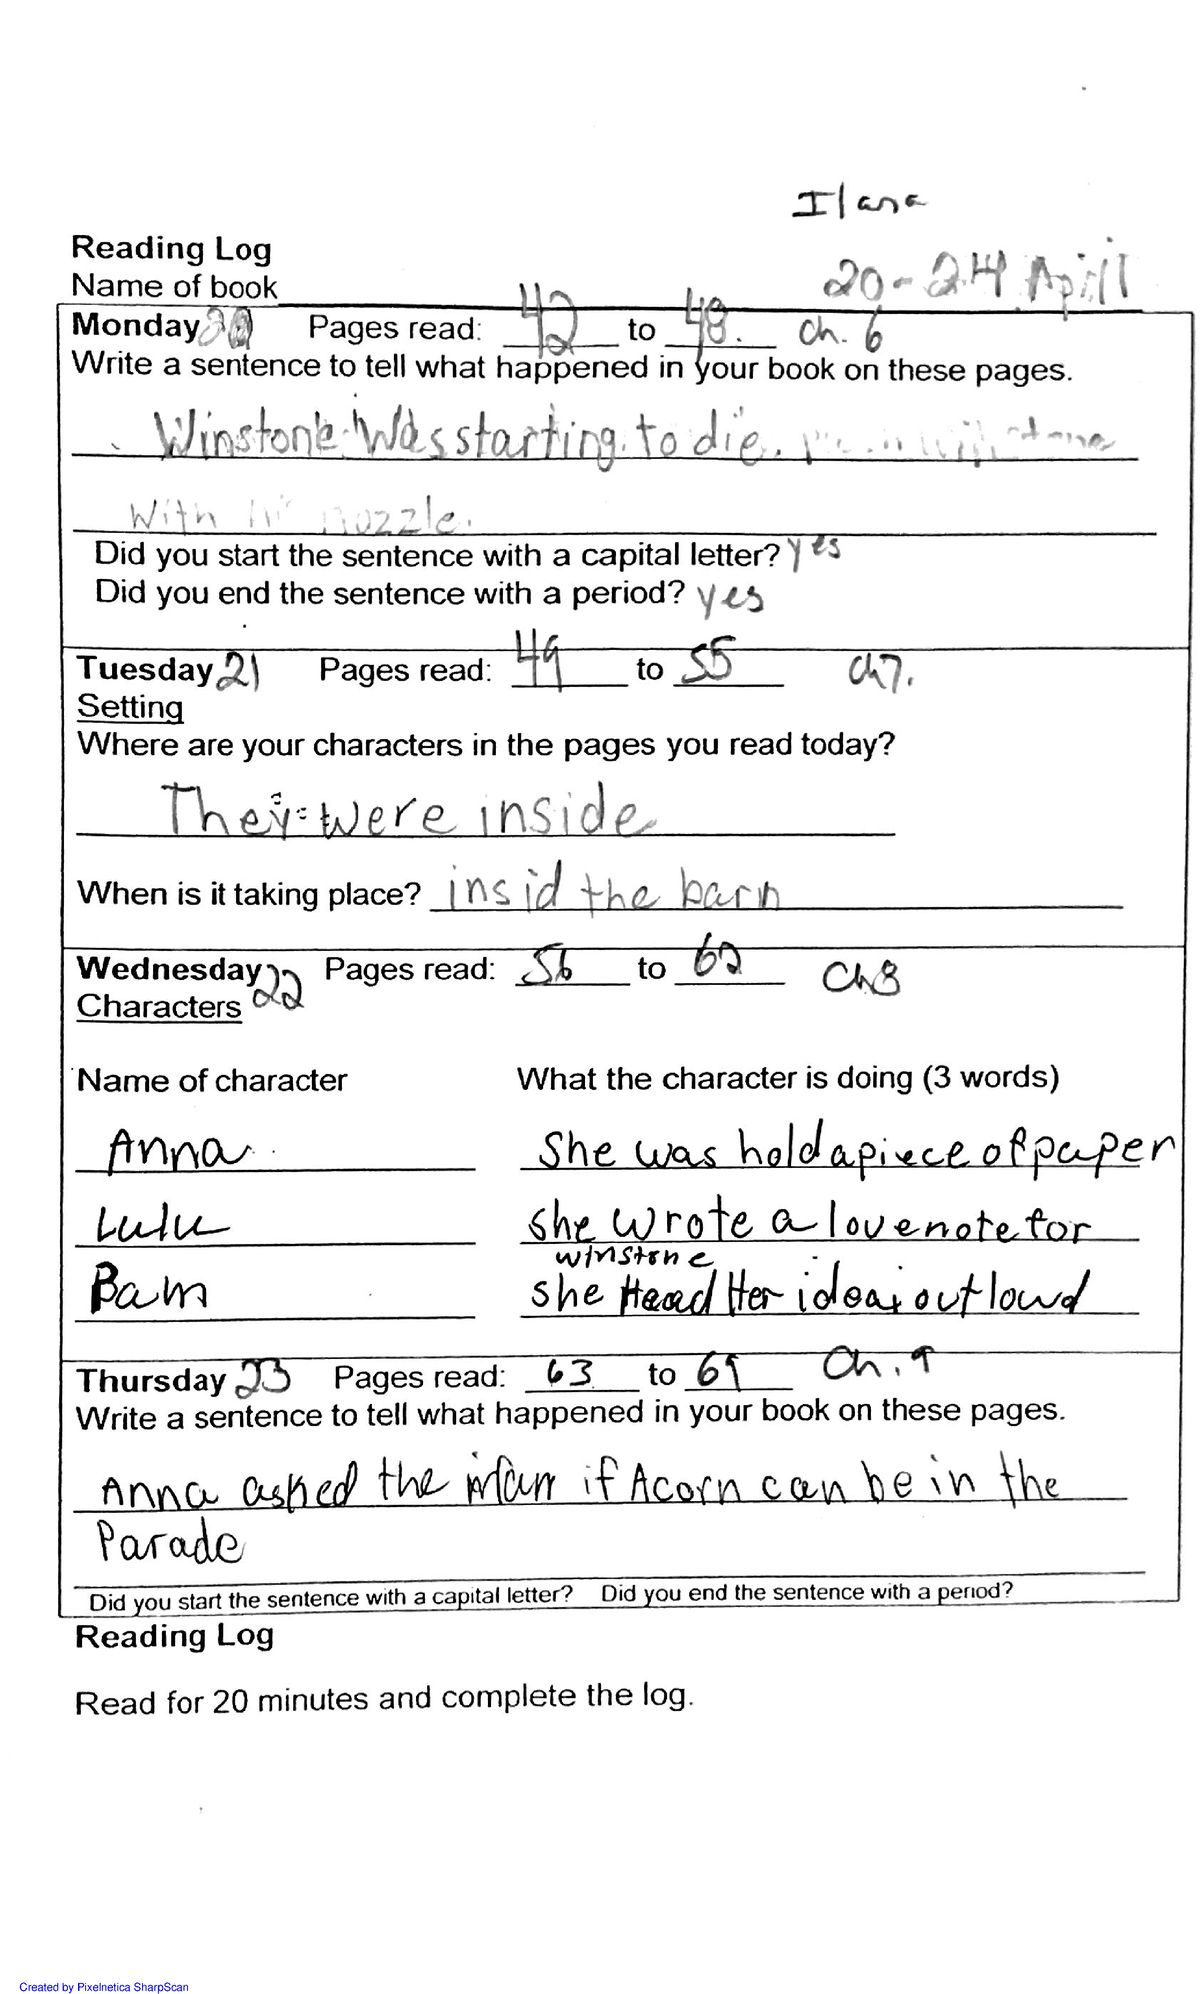 Ilana
Reading Log
20-24 April
Name of book
Monday 20 Pages read: 42 to 48. ch. 6
Write a sentence to tell what happened in your book on these pages.
Winstone Was starting to die.
With nozzle.
Did you start the sentence with a capital letter? yes
Did you end the sentence with a period? yes
Tuesday 21 Pages read: 49 to 55 Ch 7.
Setting
Where are your characters in the pages you read today?
They were inside
When is it taking place? insid the barn
Wednesday 22 Pages read: 56 to 62 Ch 8
Characters
Name of character What the character is doing (3 words)
Anna She was hold a piece of paper
Lulu she wrote a love note for
winstone
Bam she Her out lowd
Thursday 23 Pages read: 63 to 69 Ch. 9
Write a sentence to tell what happened in your book on these pages.
Anna asked the man if Acorn can be in the
Parade
Did you start the sentence with a capital letter? Did you end the sentence with a period?
Reading Log
Read for 20 minutes and complete the log.
Created by Pixelnetica SharpScan